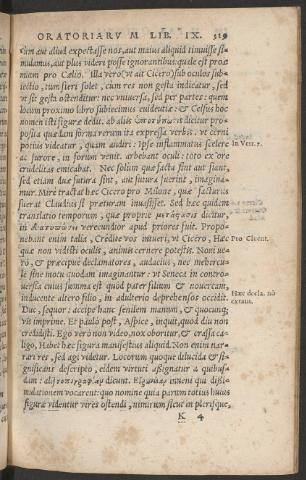 ORATORIARV M LIB. IX. 519
cum aut aliud expectasse nos, aut maius aliquid timuisse si-
mulamus, aut plus videri posse ignorantibus: quale est proœ-
mium pro Cælio. Illa verò (vt ait Cicero) sub oculos subie-
iectio, tum fieri solet, cùm res non gesta indicatur, sed
vt sit gesta ostenditur: nec vniuersa, sed per partes: quem
locum proximo libro subiecimus euidentiæ: & Celsus hoc
nomen isti figuræ dedit. ab aliis ὑποτύπωσις dicitur pro-
posita quædam forma rerum ita expressa verbis: vt cerni
potius videatur, quàm audiri: Ipse inflammatus scelere
ac furore, in forum venit. arbebant oculi: toto ex ore
crudelitas emicabat. Nec solùm quæ facta sint aut fiant,
sed etiam quæ futura sint, aut futura fuerint, imagina-
mur. Mirè tractat hæc Cicero pro Milone, quæ facturus
fuerat Claudius si præturam inuasisset. Sed hæc quidem
translatio temporum, quæ propriè μετάστασις dicitur,
in διατυπώσει verecundior apud priores fuit. Præpo-
nebant enim talia, Credite vos intueri, vt Cicero, Hæc
quæ non vidistis oculis, animis cernere potestis. Noui ve-
rò, & præcipuè declamatores, audaciùs, nec mehercu-
le sine motu quodam imaginantur: vt Seneca in contro-
uersia cuius summa est quòd pater filium & nouercam,
inducente altero filio, in adulterio deprehensos occidit.
Duc, sequor: accipe hanc senilem manum, & quocunq;
vis imprime. Et paulò pòst, Aspice, inquit, quod diu non
credidisti. Ego verò non video, nox oboritur, & crassa ca-
ligo. Habet hæc figura manifestius aliquid. Non enim nar-
rari res, sed agi videtur. Locorum quoque dilucida & si-
gnificans descriptio, eidem virtuti assignatur à quibus-
dam: alij τοπογραφίαν dicunt. Εἰρωνείαν inueni qui dissi-
mulationem vocarent: quo nomine quia parum totius huius
figuræ videntur vires ostendi, nimirum sicut in plerisque,
K 4
In Verr. 7.
Pro Cluent.
Hæc decla. nõ
extat.